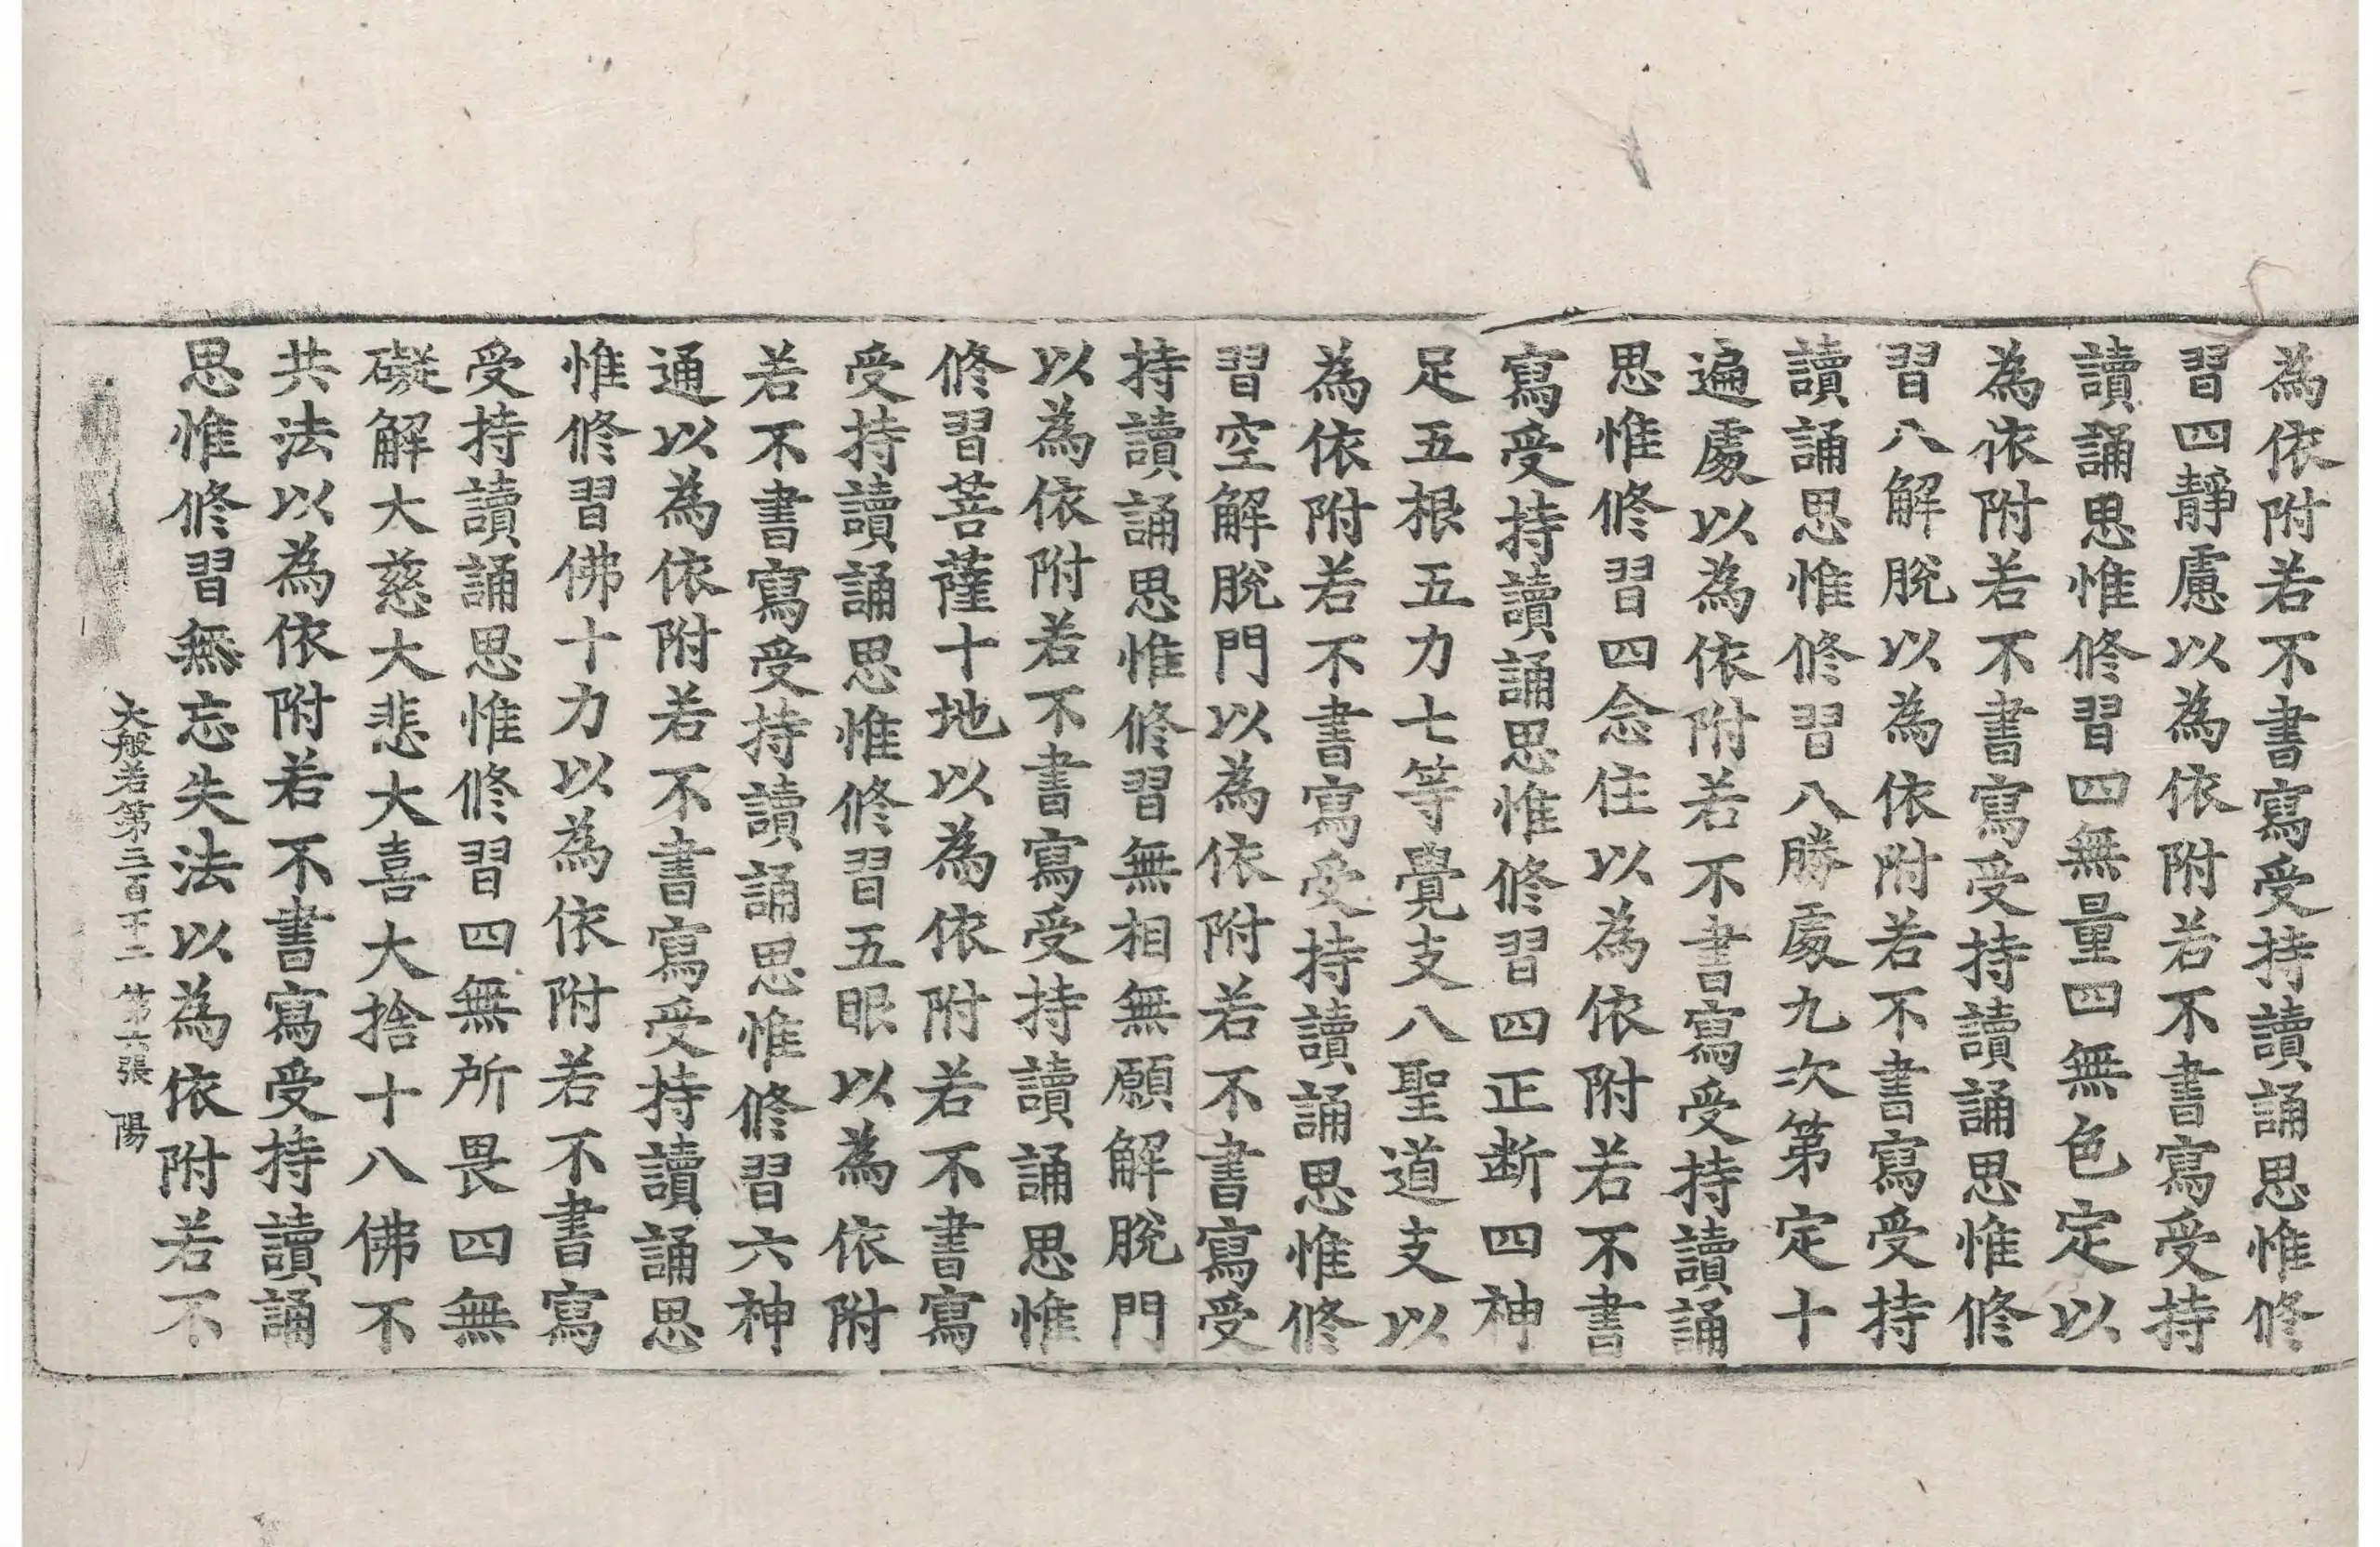 為依附若不書寫受持讀誦思惟修
習四靜慮以為依附若不書寫受持
讀誦思惟修習四無量四無色定以
為依附若不書寫受持讀誦思惟修
習八解脫以為依附若不書寫受持
讀誦思惟修習八勝處九次第定十
遍處以為依附若不書寫受持讀誦
思惟修習四念住以為依附若不書
寫受持讀誦思惟修習四正断四神
足五根五力七等覺支八聖道支以
為依附若不書寫受持讀誦思惟修
習空解脫門以為依附若不書寫受
持讀誦思惟修習無相無願解脫門
以為依附若不書寫受持讀誦思惟
修習菩薩十地以為依附若不書寫
受持讀誦思惟修習五眼以為依附
若不書寫受持讀誦思惟修習六神
通以為依附若不書寫受持讀誦思
惟修習佛十力以為依附若不書寫
受持讀誦思惟修習四無所畏四無
礙解大慈大悲大喜大捨十八佛不
共法以為依附若不書寫受持讀誦
思惟修習無忘失法以為依附若不
大般若第三百二 第六張 陽